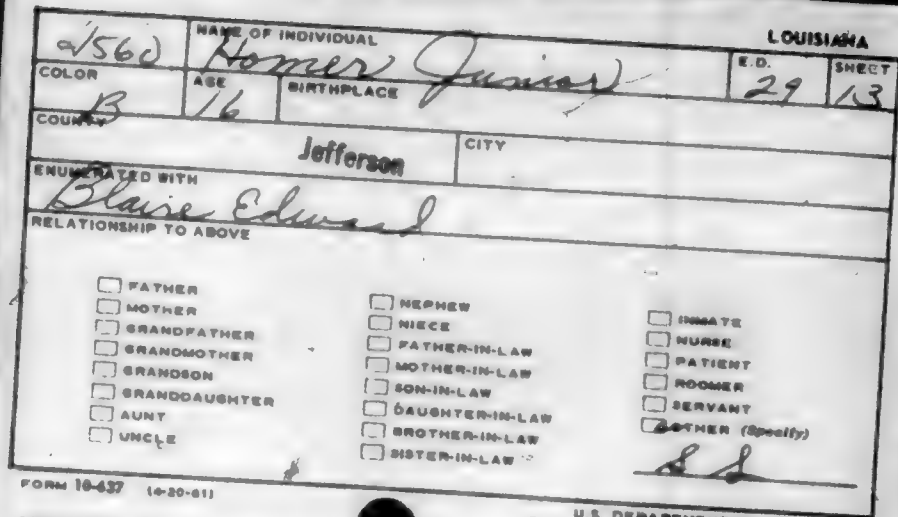 LOUISIANA
NAME OF INDIVIDUAL E.D. SHEET
Homer Junior 29 13
COLOR AGE BIRTHPLACE
B 16
COUNTY CITY
Jefferson
ENUMERATED WITH
Blaise Edward
RELATIONSHIP TO ABOVE
FATHER
MOTHER
GRANDFATHER
GRANDMOTHER
GRANDSON
GRANDDAUGHTER
AUNT
UNCLE
NEPHEW
NIECE
FATHER-IN-LAW
MOTHER-IN-LAW
SON-IN-LAW
DAUGHTER-IN-LAW
BROTHER-IN-LAW
SISTER-IN-LAW
INMATE
NURSE
PATIENT
ROOMER
SERVANT
OTHER (Specify)
S S
FORM 10-637 (4-20-61)
U.S.